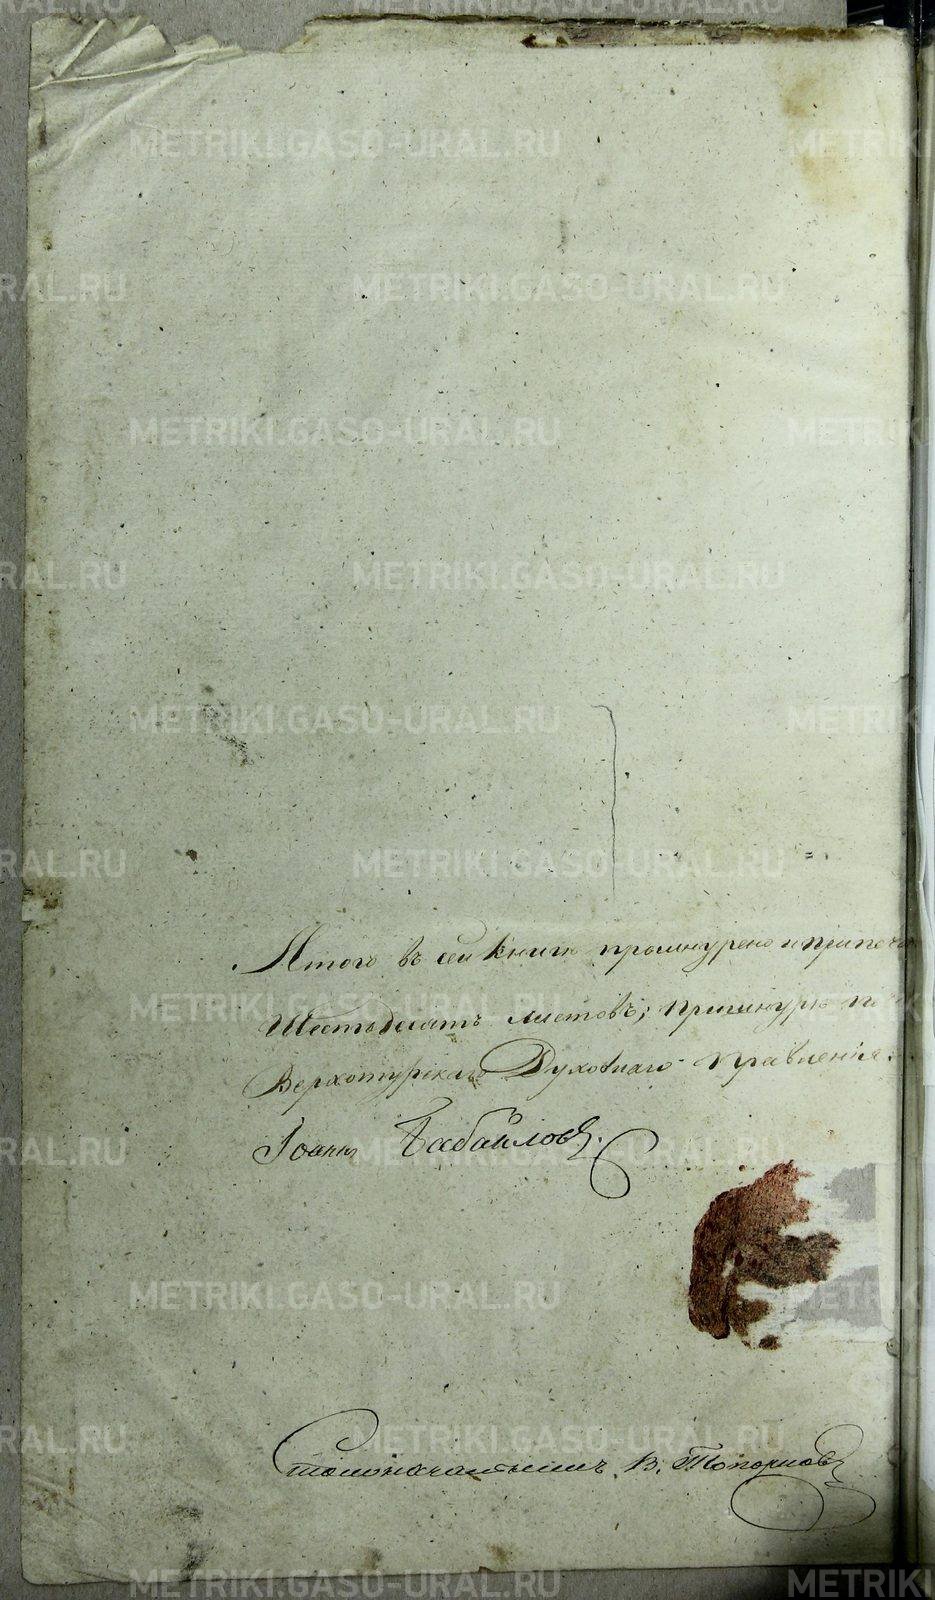 Итого въ сей книгѣ прошнурено и припеча
Шестьдесятъ листовъ;
Верхотурскаго Духовнаго Правленія.
Іоаннъ Бабайловъ.
Столоначальникъ В. Топорковъ
METRIKI.GASO-URAL.RU